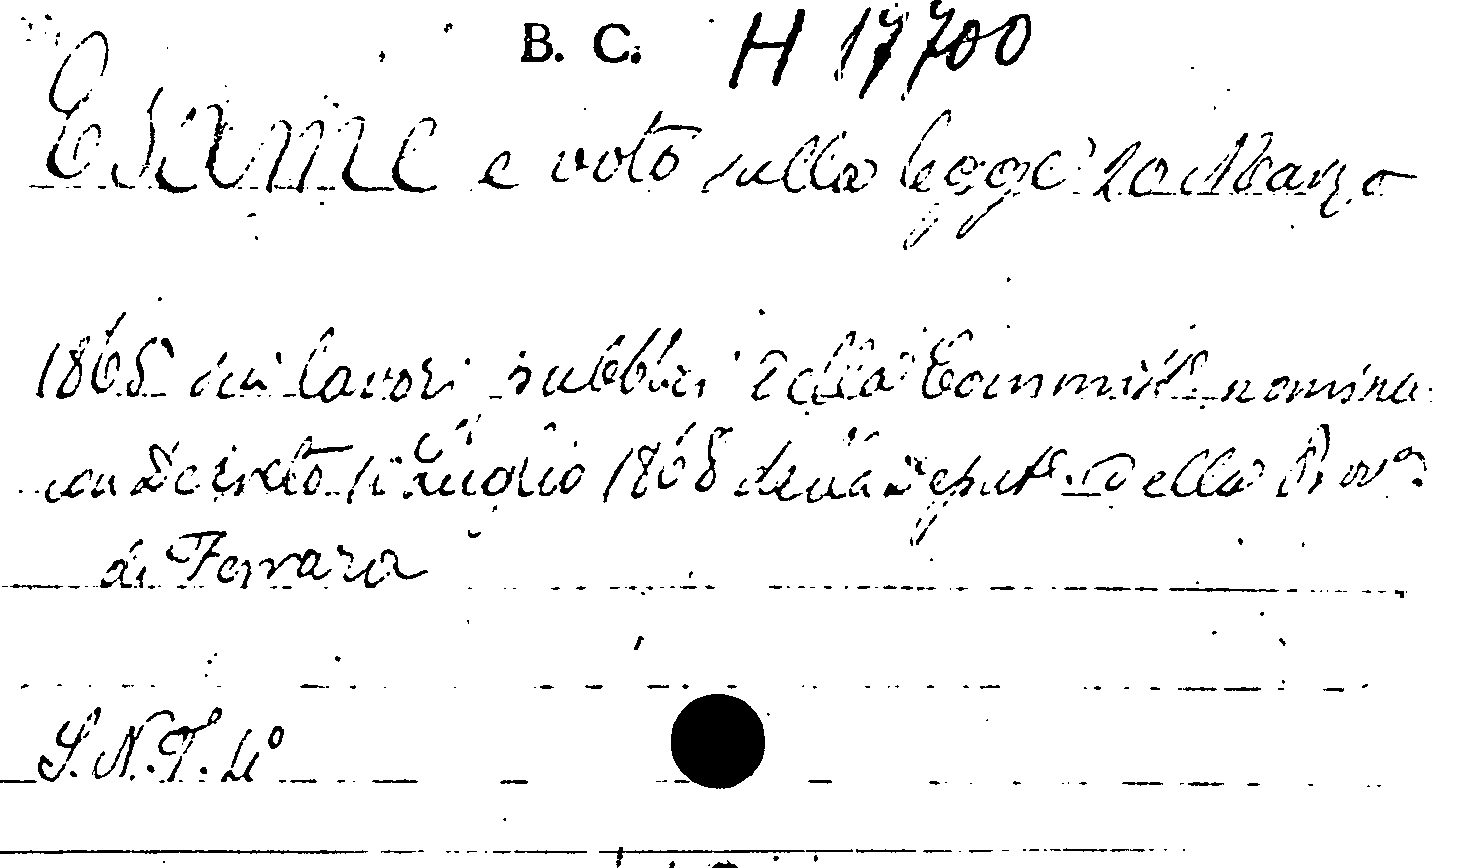 B. C. H 17700
Esame e voto sulla legge 20 Marzo
1865 sui lavori pubblici della Commiss. nomina
con Decreto Luglio 1868 della Deput. della Prov.
di Ferrara
S. N. T. 4°